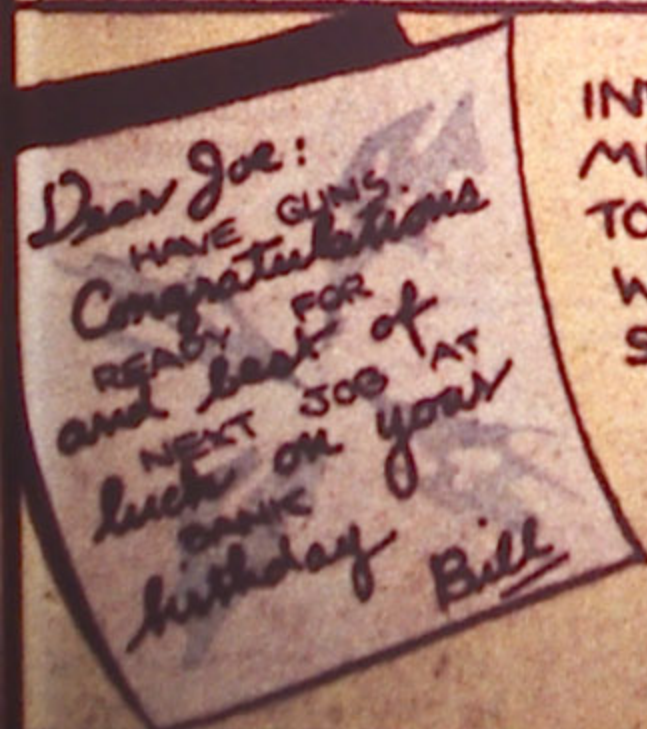 Dear Joe:
HAVE GUNS.
Congratulations
READY FOR
and best of
NEXT JOB AT
luck on your
BANK
birthday
Bill
IN
M
TO
W
S